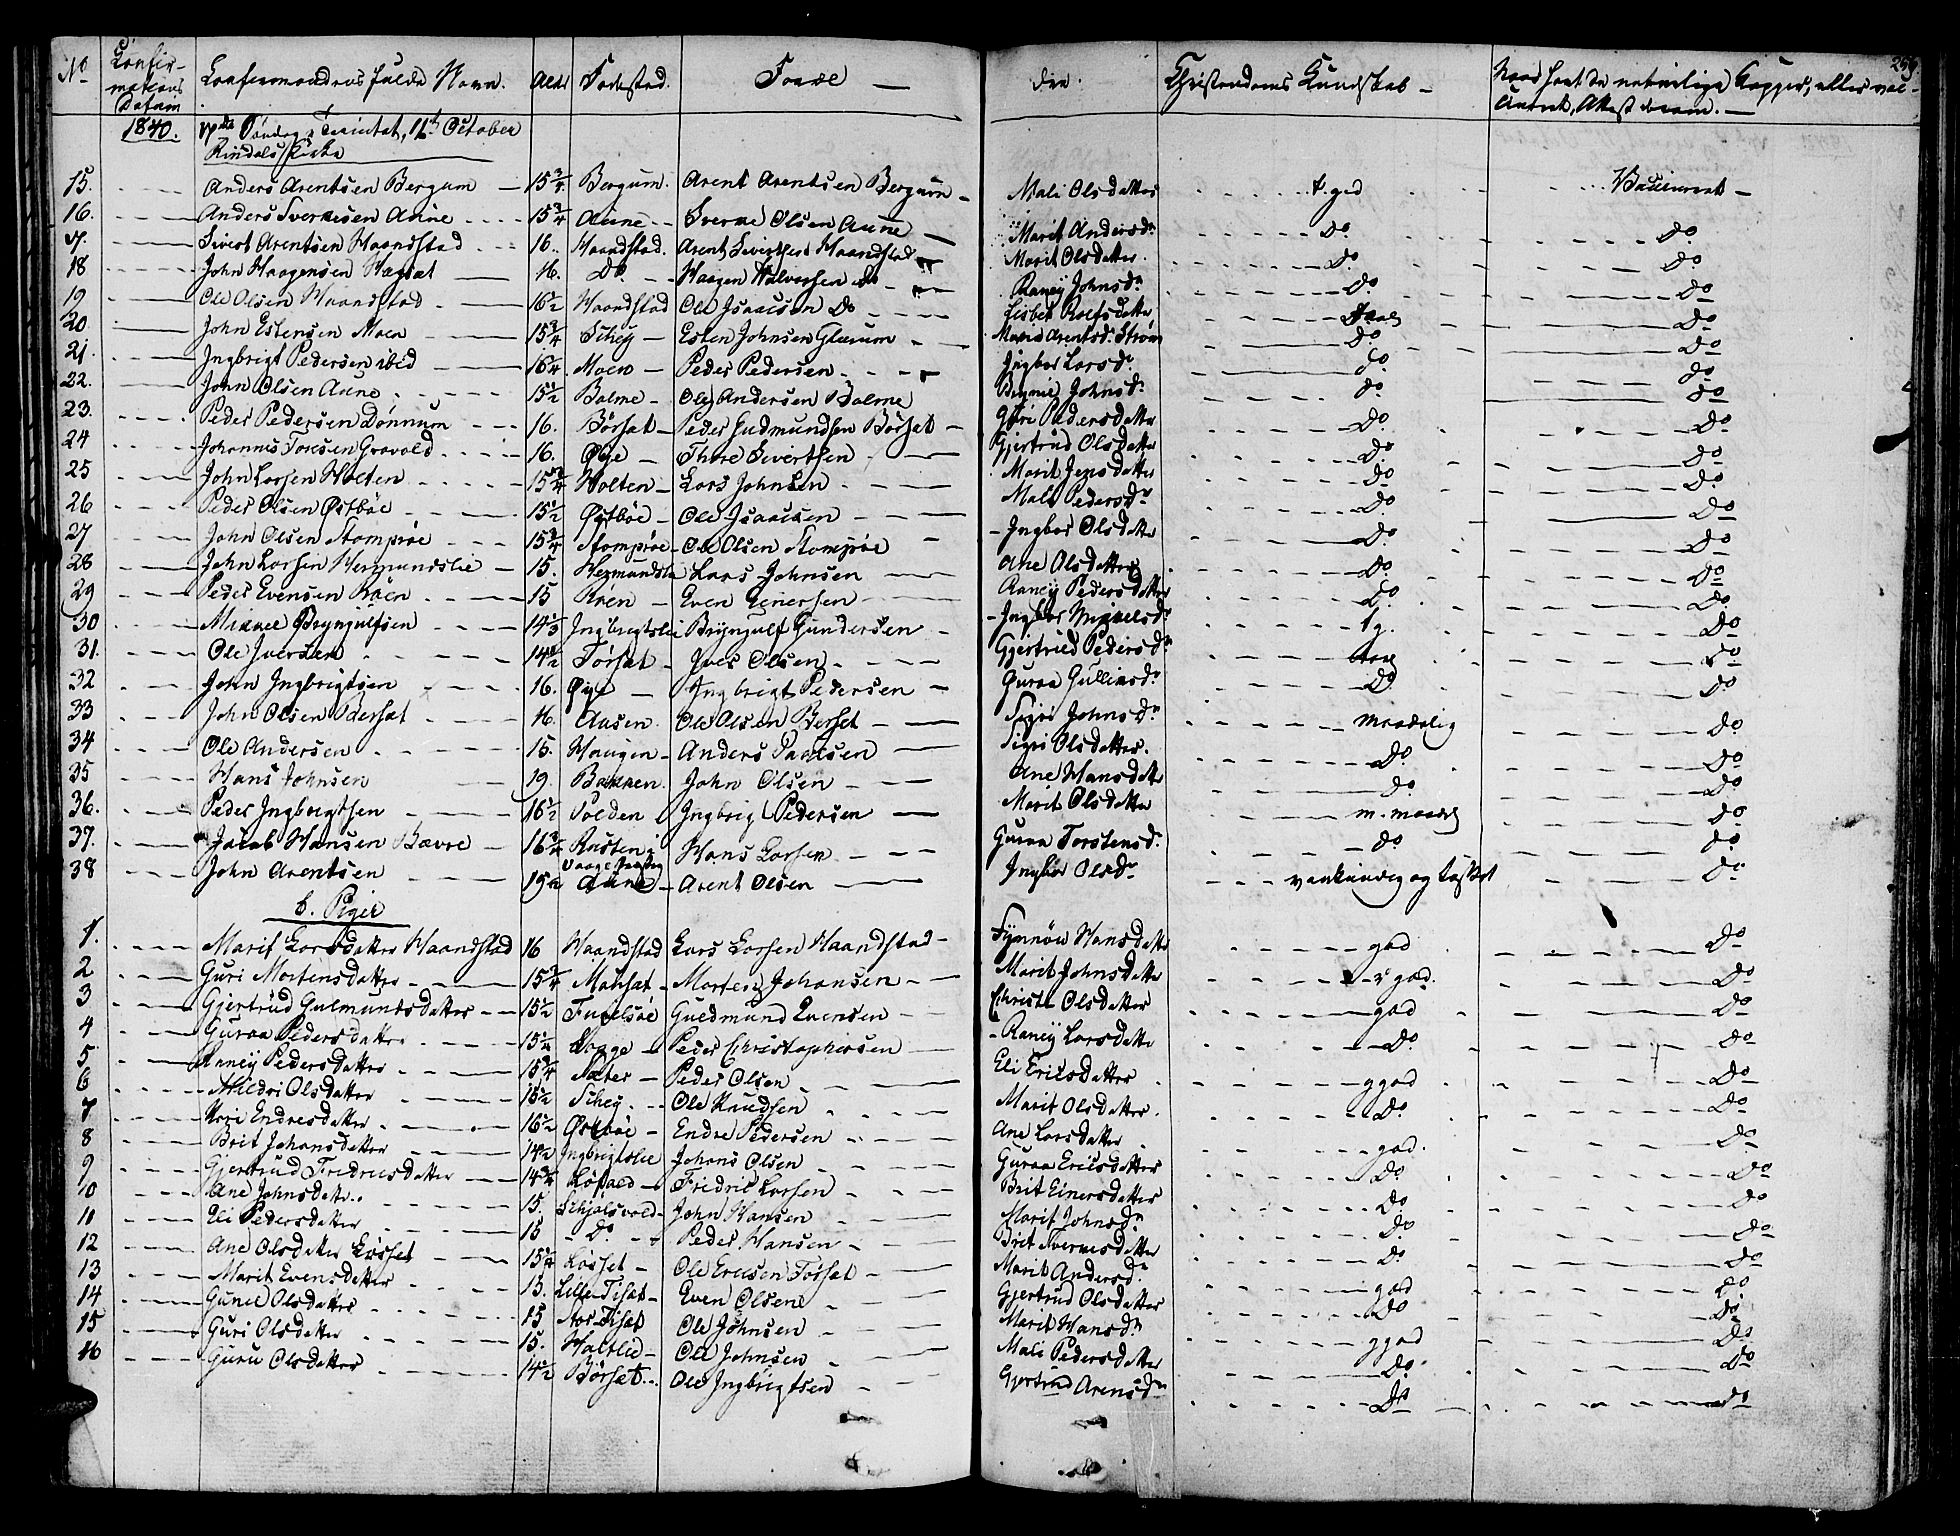 No Confirmations Datum Confirmandens fulde Navn. Alder Fødested. Foræl — dre Christendoms Kundskab — 259
1840. 17de Søndag Trinitat, 11te October
Rindals Kirke
15. Anders Arentsen Bergum — 15 3/4 Bergum. Arent Arentsen Bergum — Mali Olsdatter t. god Vaccineret —
16. Anders Sversen Aune 15 3/4 Aune Sverre Olsen Aune — Marit Andersdr Do Do
17. Sivert Arentsen Haandstad 16. Haandstad. Arent Sivertsen Haandstad Marit Olsdatter. Do Do
18 John Haagensen 16. Do Haagen Halvorsen Do Raney Johnsdr Do Do
19 Ole Olsen Haandstad 16 1/2 Haandstad Ole Isaacsen Do Lisbet Rolfsdatter Do
20 John Estensen Moen 15 3/4 Schey — Esten Johnsen Glærum Marit Arentsdr Strøm Do Do
21. Ingbrigt Pedersen ibid 16 1/4 Moen — Peder Pedersen Ingbor Larsdr Do Do
22. John Olsen Aune 15 1/2 Bolme — Ole Andersen Bolme Johnsdr Do Do
23. Peder Pedersen Dønnum 16. Børset — Peder Gudmundsen Børset — Guri Pedersdatter Do Do
24 Johannes Toresen Gravold 16. Øye — Thore Sivertsen Gjertrud Olsdatter Do Do
25 John Larsen Holten 15 3/4 Holten — Lars Johnsen Marit Jensdatter Do Do
26 Peder Olsen Østbøe 15 1/2 Østbøe — Ole Isaacsen Mali Pedersdr Do Do
27 John Olsen Stomprøe 15 3/4 Stomprøe — Ole Olsen Stomprøe Ingbor Olsdatter Do Do
28 John Larsen Hermundslie — 15. Hermundslie Lars Johnsen Ane Olsdatter Do Do
29 Peder Evensen Røen 15 Røen — Even Einersen Raney Pedersdatter Do Do
30 Mikkel Brynjulfsen 14 1/3 Ingbrigtslie Brynjulf Gundersen Ingbor Mikkelsdr tg. Do
31. Ole Iversen 14 1/2 Tørset — Iver Olsen Gjertrud Pedersdr Do
32 John Ingbrigtsen 16. Øye — Ingbrigt Pedersen — Guraa Gulliksdr Do. Do
33 John Olsen Børset 16. Aasen. Ole Olsen Børset Sigri Johnsdr maadelig Do
34 Ole Andersen 15. Haugen — Anders Paulsen Sigri Olsdatter. Do Do
35 Hans Johnsen 19. Bakken. John Olsen Ane Hansdatter Do Do
36. Peder Ingbrigtsen 16 1/2 Volden Ingbrig Pedersen Marit Olsdatter Do
37. Jacob Hansen Bævre — 16 3/4 Rusten i Hans Larsen Guraa Torstensdr Do Do
38 John Arentsen 19 1/2 Aune — Arent Olsen Ingbor Olsdr vankundig og Do
b. Piger
1. Marit Larsdatter Haandstad 16 Haandstad Lars Larsen Haandstad — Synnøve Hansdatter god Do
2 Guri Mortensdatter 15 3/4 Morten Johansen Marit Johnsdatter god. Do
3 Gjertrud Gudmundsdatter 15 1/2 Fuglsøe Gudmund Evensen Christi Olsdatter god Do
4 Guraa Pedersdatter 15 1/2 Peder Christophersen Raney Larsdatter Do Do
5 Raney Pedersdatter 15 3/4 Sæter — Peder Olsen Eli Ericsdatter ggod Do
6 Mildri Olsdatter 15 1/2 Schey Ole Knudsen Marit Olsdatter. Do Do
7 Kari Endresdatter 16 1/2 Østbøe — Endre Pedersen Ane Larsdatter god. Do
8 Brit Johansdatter 14 1/2 Ingbrigtslie Johans Olsen Guraa Ericsdatter Do Do
9 Gjertrud Fredricsdatter 14 3/4 Fredric Larsen Brit Einersdatter Do Do
10 Ane Johnsdatter 15. John Hansen Marit Johnsdr Do Do
11 Eli Pedersdatter 15 Do Peder Hansen Brit Sversdatter Do Do
12 Ane Olsdatter Løsset 15 3/4 Løsset — Ole Ericsen Tørset Marit Andersdr god Do
13 Marit Evensdatter 15. Lille Tiset — Even Olsen Gjertrud Olsdatter Do Do
14 Gunil Olsdatter 15 Stor Tiset Ole Johnsen Marit Hansdr ggod Do
15 Guri Olsdatter 15. Haltlie — Ole Johnsen Mali Pedersdatter Do Do
16 Guru Olsdatter 14 1/2 Børset Ole Ingbrigtsen Gjertrud Arensdr Do Do